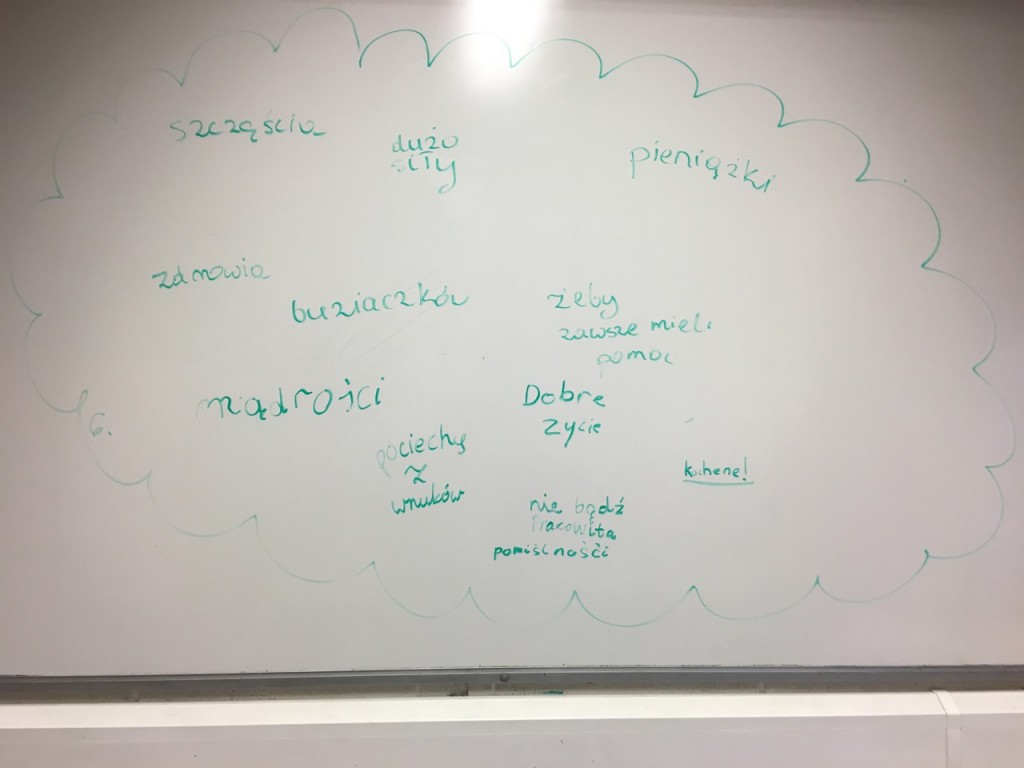 szczęścia
dużo
siły
pieniążki
zdrowia
buziaczków
żeby
zawsze mieli
pomoc
mądrości
Dobre
życie
6.
pociechy
z
wnuków
kochene!
nie bądź
Pracowita
pomiśności